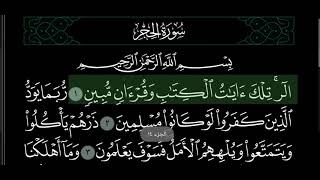 سُورَةُ الحِجْرِ
بِسْمِ اللَّهِ الرَّحْمَٰنِ الرَّحِيمِ
الٓرۚ تِلْكَ ءَايَٰتُ ٱلْكِتَٰبِ وَقُرْءَانٖ مُّبِينٖ ١ رُّبَمَا يَوَدُّ
ٱلَّذِينَ كَفَرُواْ لَوْ كَانُواْ مُسْلِمِينَ ٢ ذَرْهُمْ يَأْكُلُواْ
وَيَتَمَتَّعُواْ وَيُلْهِهِمُ ٱلْأَمَلُۖ فَسَوْفَ يَعْلَمُونَ ٣ وَمَآ أَهْلَكْنَا
الجزء ١٤